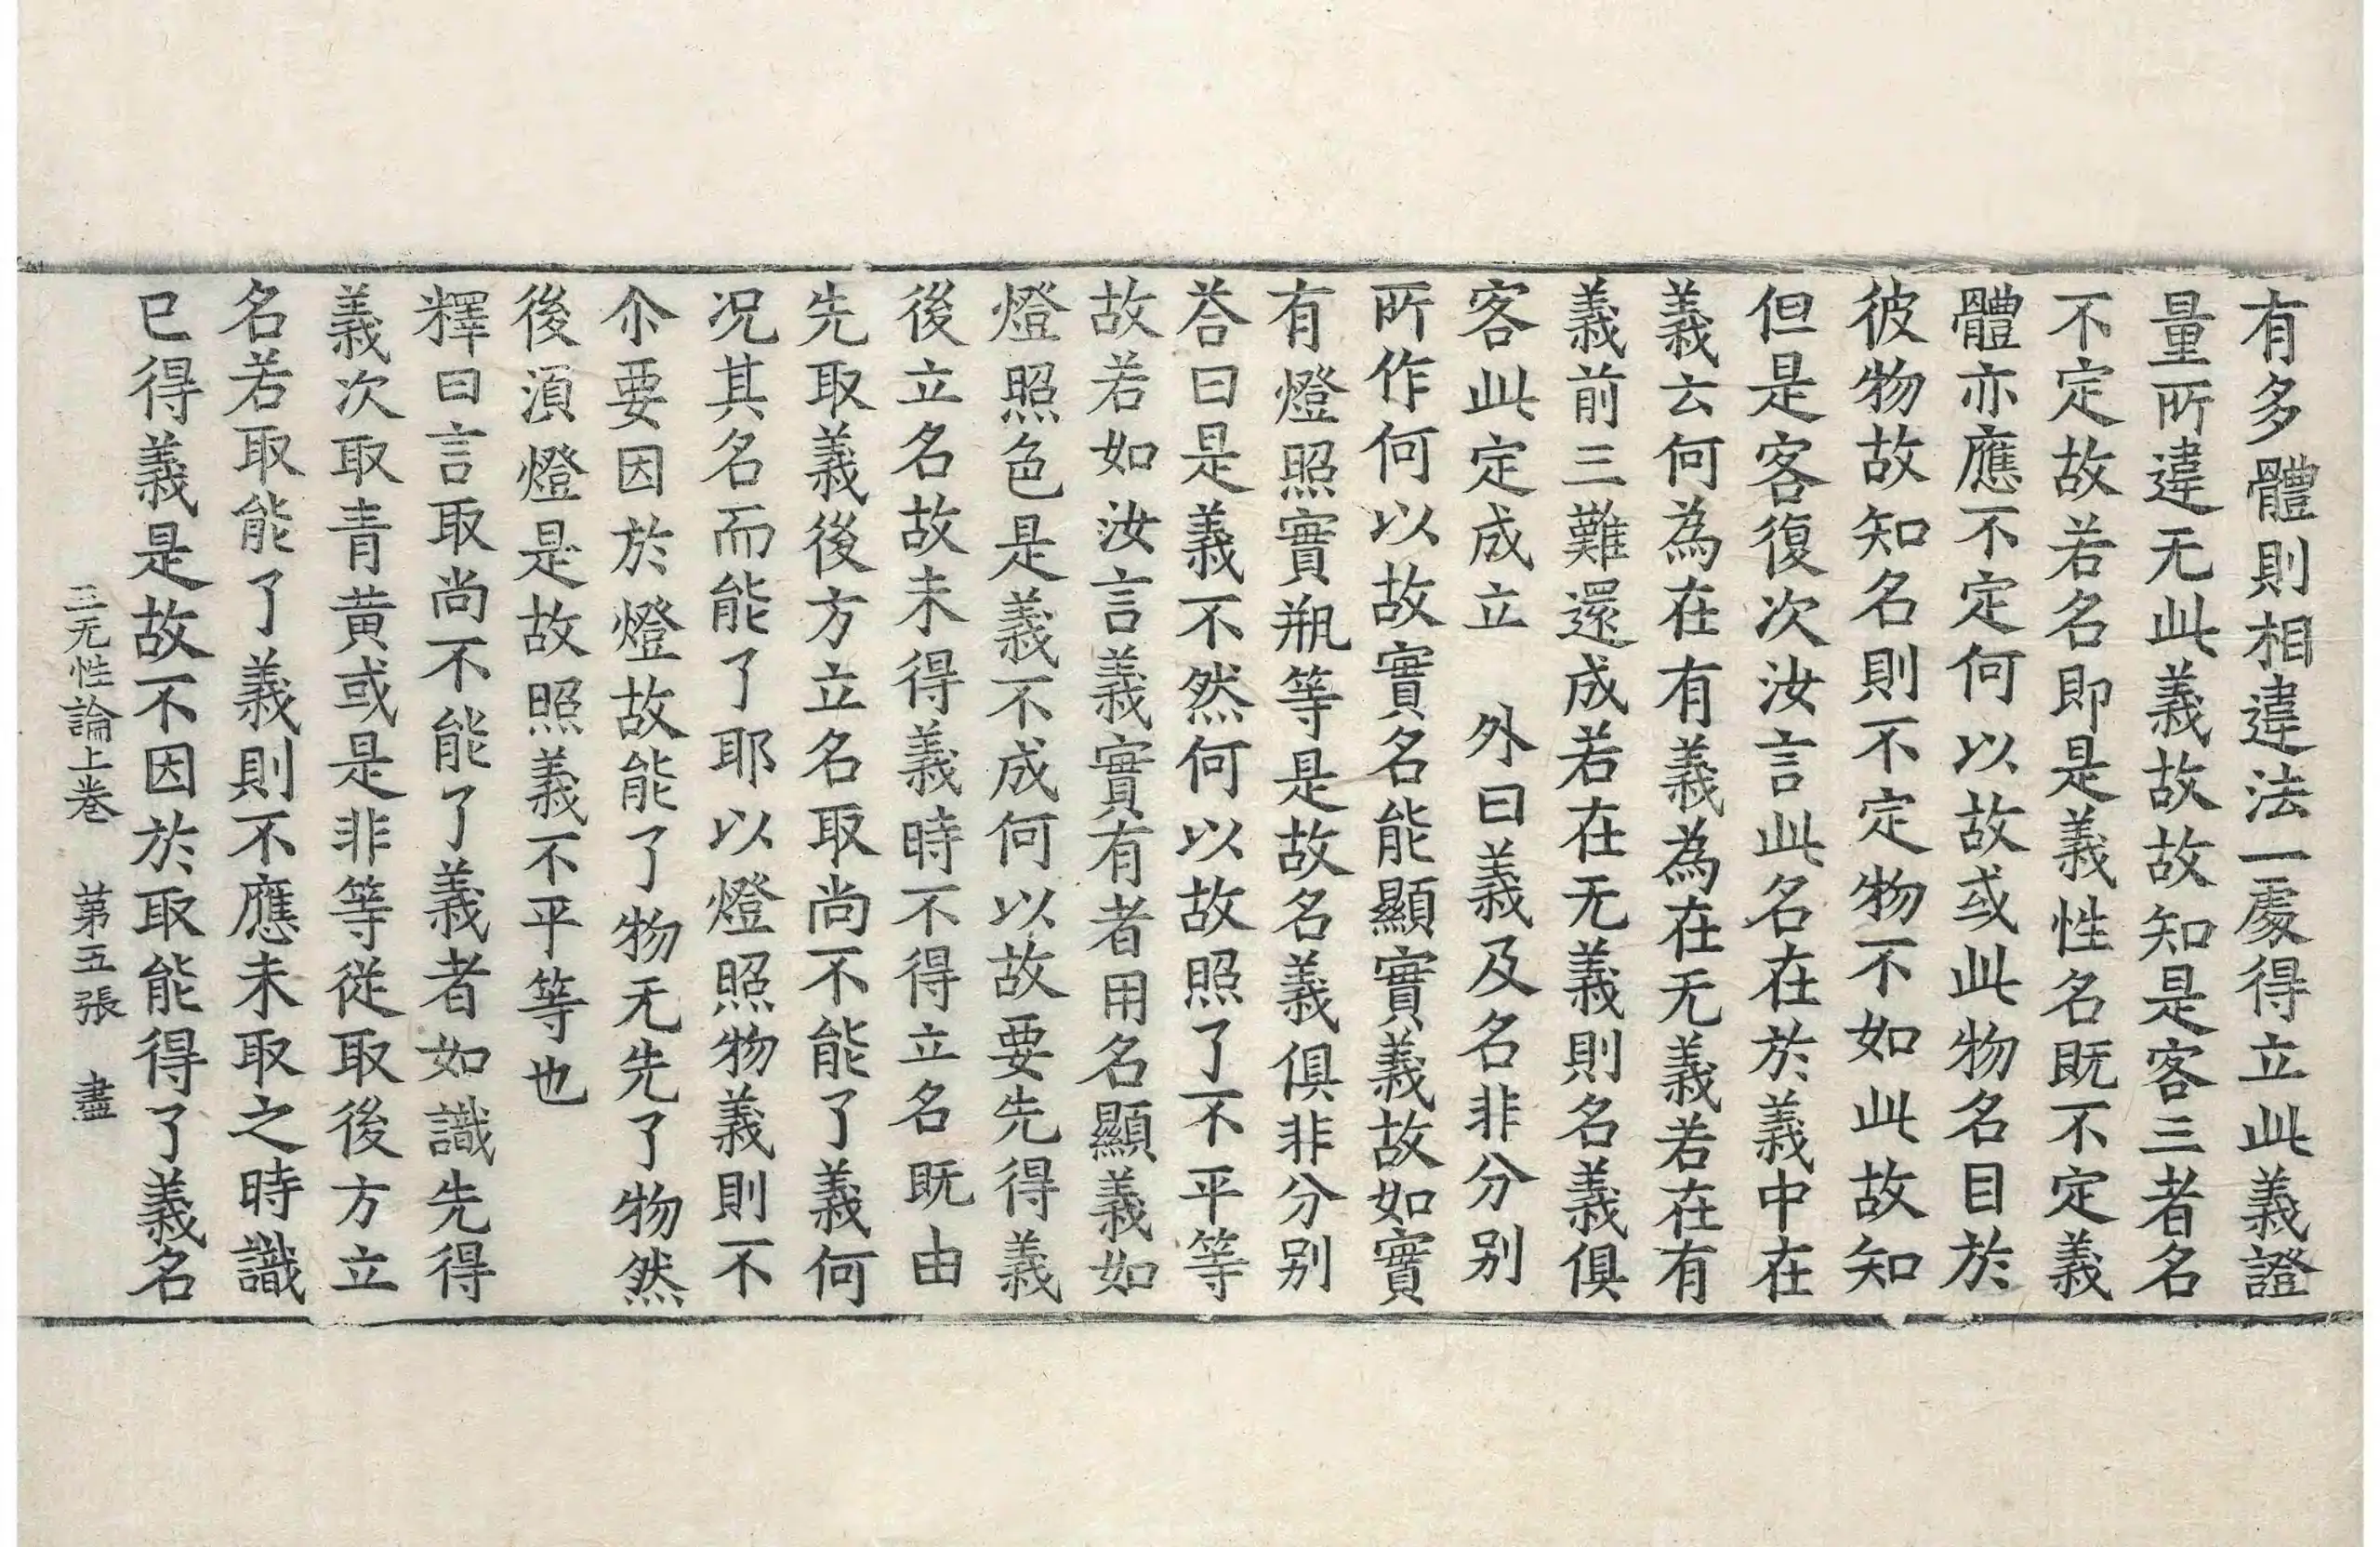 有多體則相違法一處得立此義證
量所違无此義故故知是客三者名
不定故若名即是義性名既不定義
體亦應不定何以故或此物名目於
彼物故知名則不定物不如此故知
但是客復次汝言此名在於義中在
義云何為在有義為在无義若在有
義前三難還成若在无義則名義俱
客此定成立　外曰義及名非分別
所作何以故實名能顯實義故如實
有燈照實瓶等是故名義俱非分別
荅曰是義不然何以故照了不平等
故若如汝言義實有者用名顯義如
燈照色是義不成何以故要先得義
後立名故未得義時不得立名既由
先取義後方立名取尚不能了義何
况其名而能了耶以燈照物義則不
尒要因於燈故能了物无先了物然
後湏燈是故照義不平等也
釋曰言取尚不能了義者如識先得
義次取青黃或是非等從取後方立
名若取能了義則不應未取之時識
已得義是故不因於取能得了義名
三无性論上卷　第五張　盡